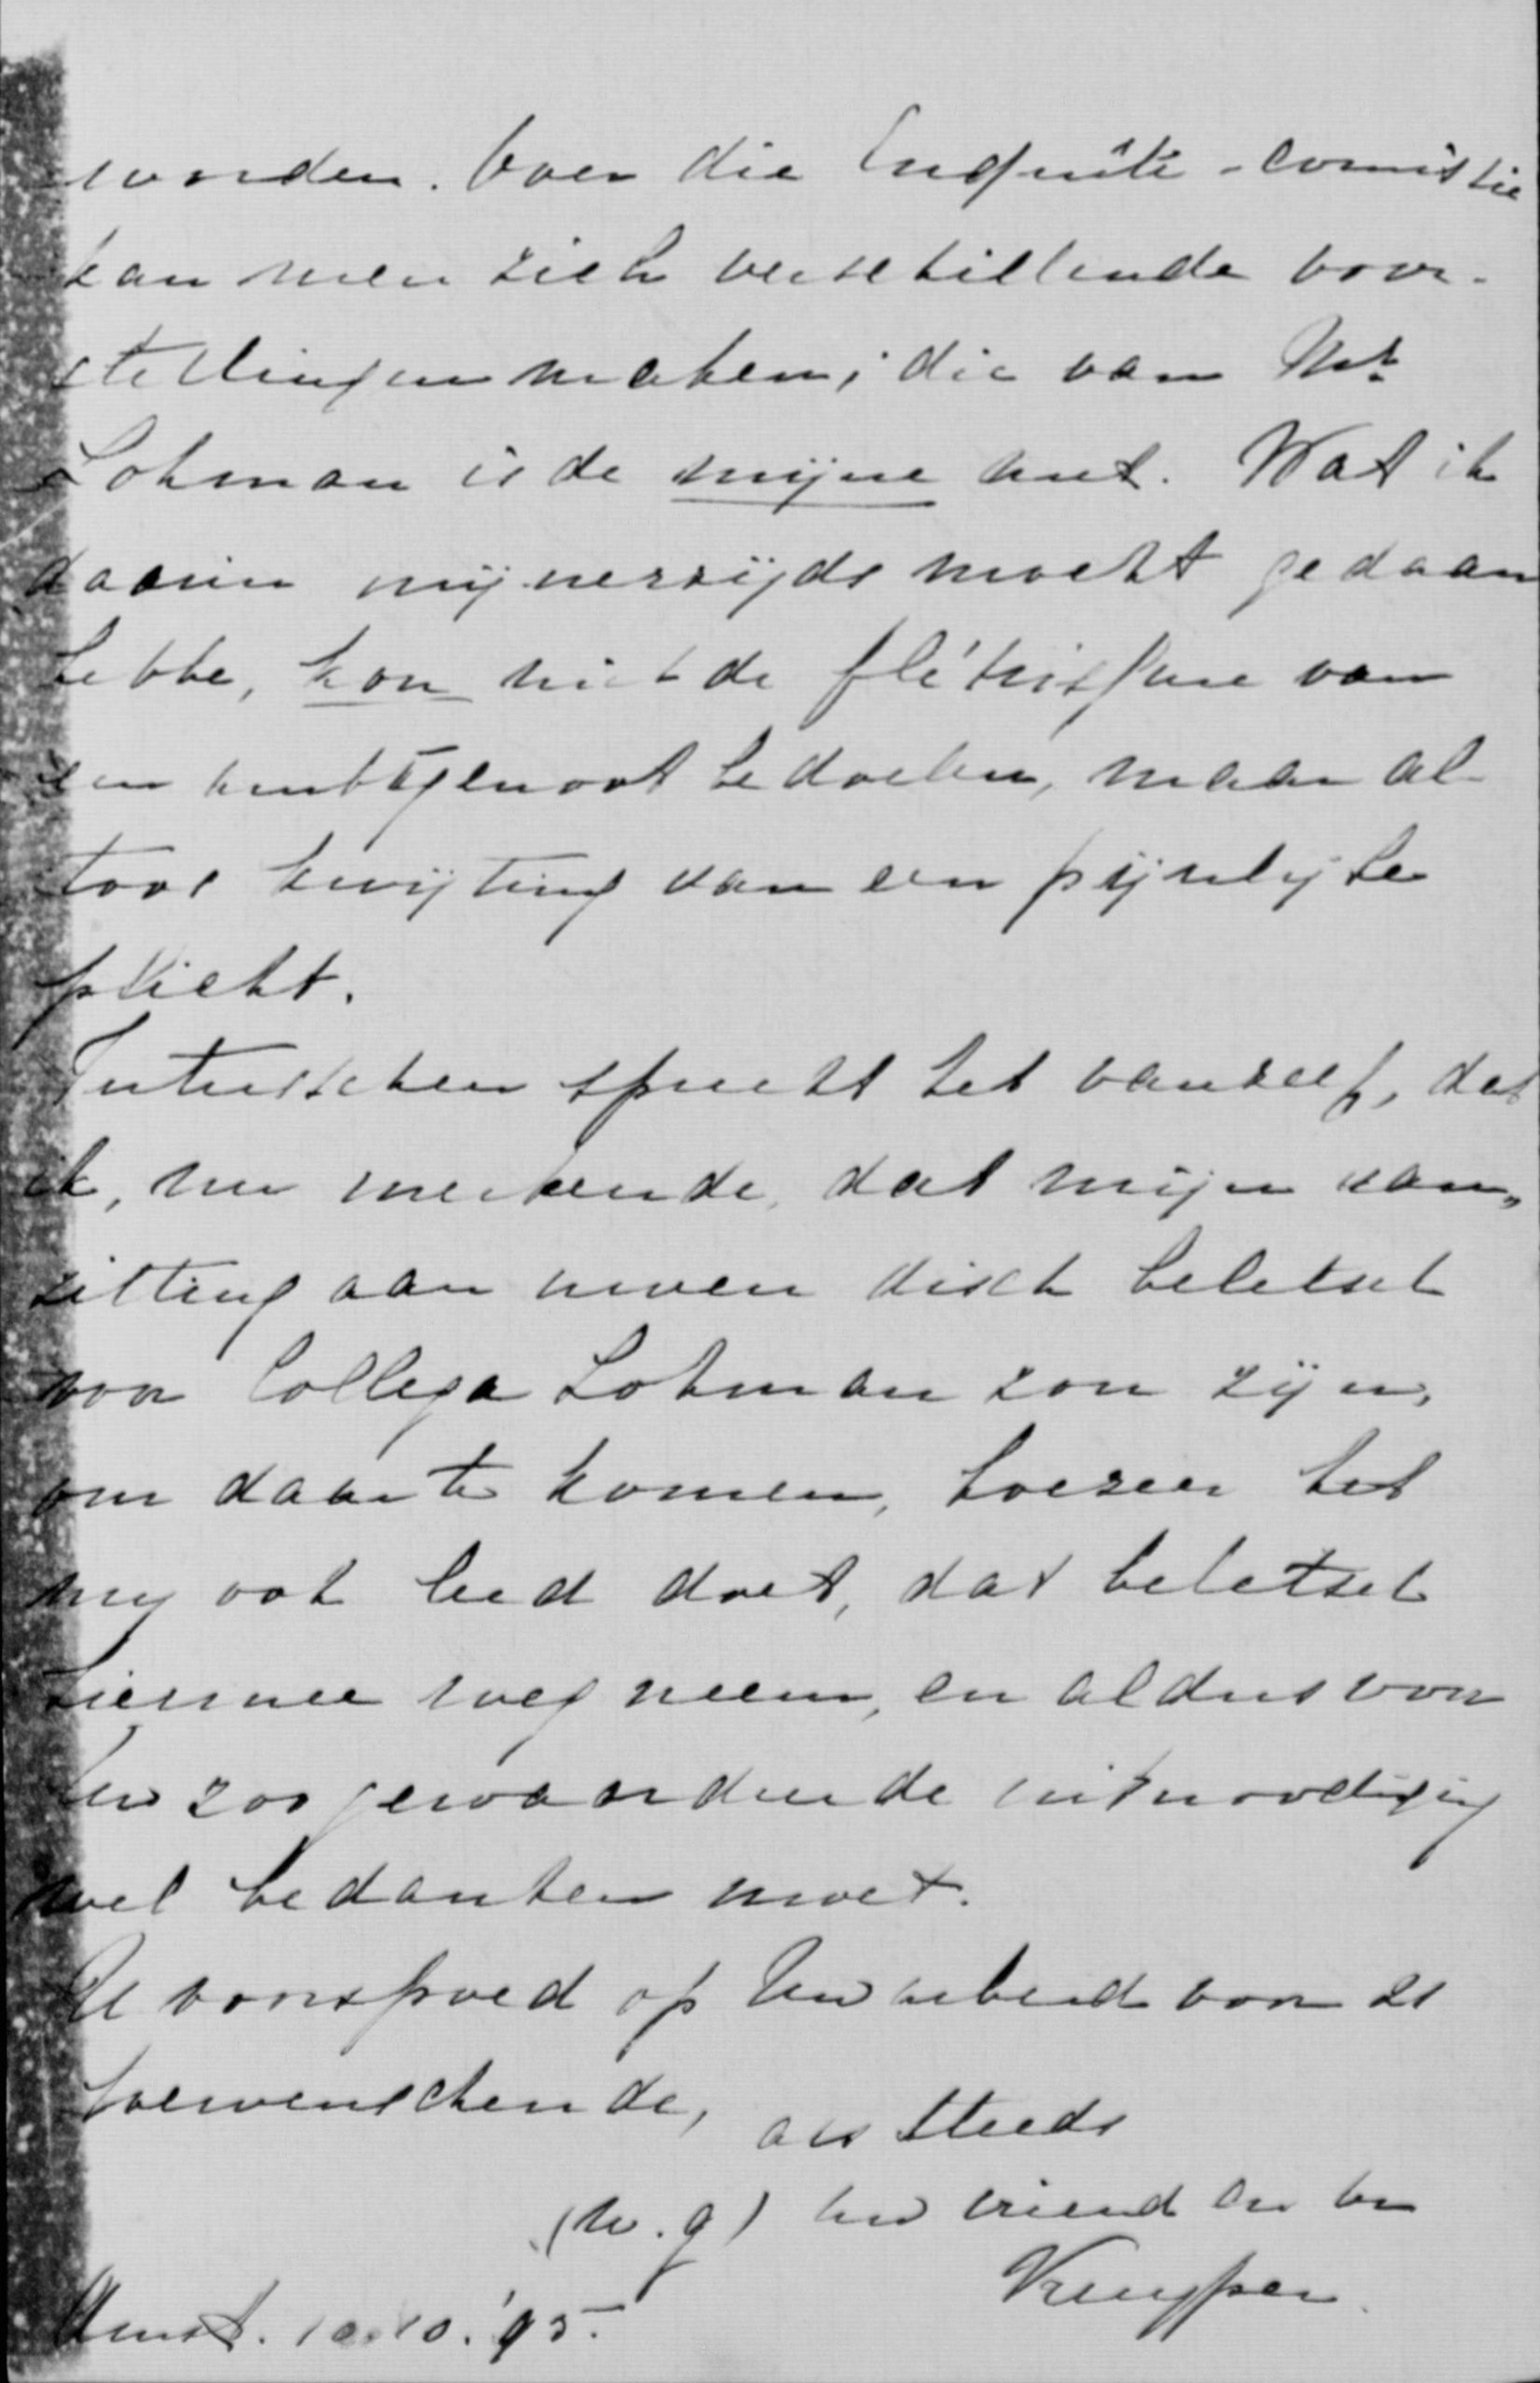 worden. Over die Enquête-Comissie
kan men zich verschillende voor-
stellingen maken; die van Mr
Lohman is de mijne niet. Wat ik
daarin mijnerzijds mocht gedaan
hebbe, kon niet de flétrissure van
een ambtgenoot bedoelen, maar al-
toos kwijting van een pijnlijke
plicht.
Intusschen spreekt het vanzelf, dat
ik, nu merkende, dat mijn aan-
zitting aan uwen disch beletsel
voor Collega Lohman zou zijn,
om daar te komen, hoezeer het
mij ook leed doet, dat beletsel
hiermee wegneem, en aldus voor
Uw zoo gewaardeerde uitnoodiging
wel bedanken moet.
U voorspoed op Uw arbeid van
toewenschende, als steeds
(w.g) Uw vriend en br
Kuyper
Amst. 10.10.'95.